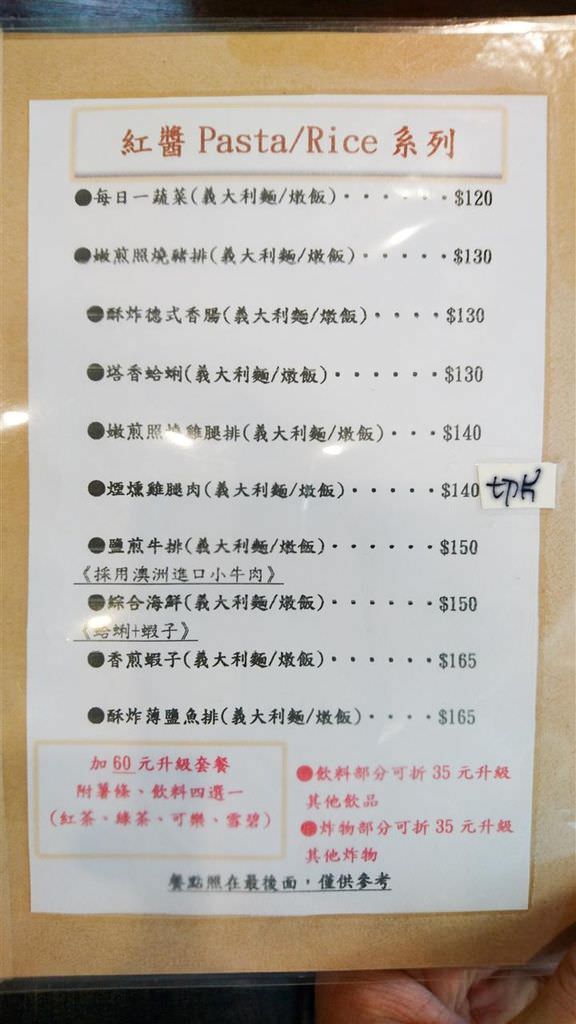 紅醬 Pasta/Rice 系列
●每日一蔬菜(義大利麵/燉飯)······$120
●嫩煎照燒豬排(義大利麵/燉飯)·····$130
●酥炸德式香腸(義大利麵/燉飯)····$130
●塔香蛤蜊(義大利麵/燉飯)······$130
●嫩煎照燒雞腿排(義大利麵/燉飯)···$140
●煙燻雞腿肉(義大利麵/燉飯)·····$140 切片
●鹽煎牛排(義大利麵/燉飯)······$150
《採用澳洲進口小牛肉》
●綜合海鮮(義大利麵/燉飯)······$150
《蛤蜊+蝦子》
●香煎蝦子(義大利麵/燉飯)······$165
●酥炸薄鹽魚排(義大利麵/燉飯)····$165
加 60 元升級套餐
附薯條、飲料四選一
(紅茶、綠茶、可樂、雪碧)
●飲料部分可折 35 元升級
其他飲品
●炸物部分可折 35 元升級
其他炸物
餐點照在最後面，僅供參考